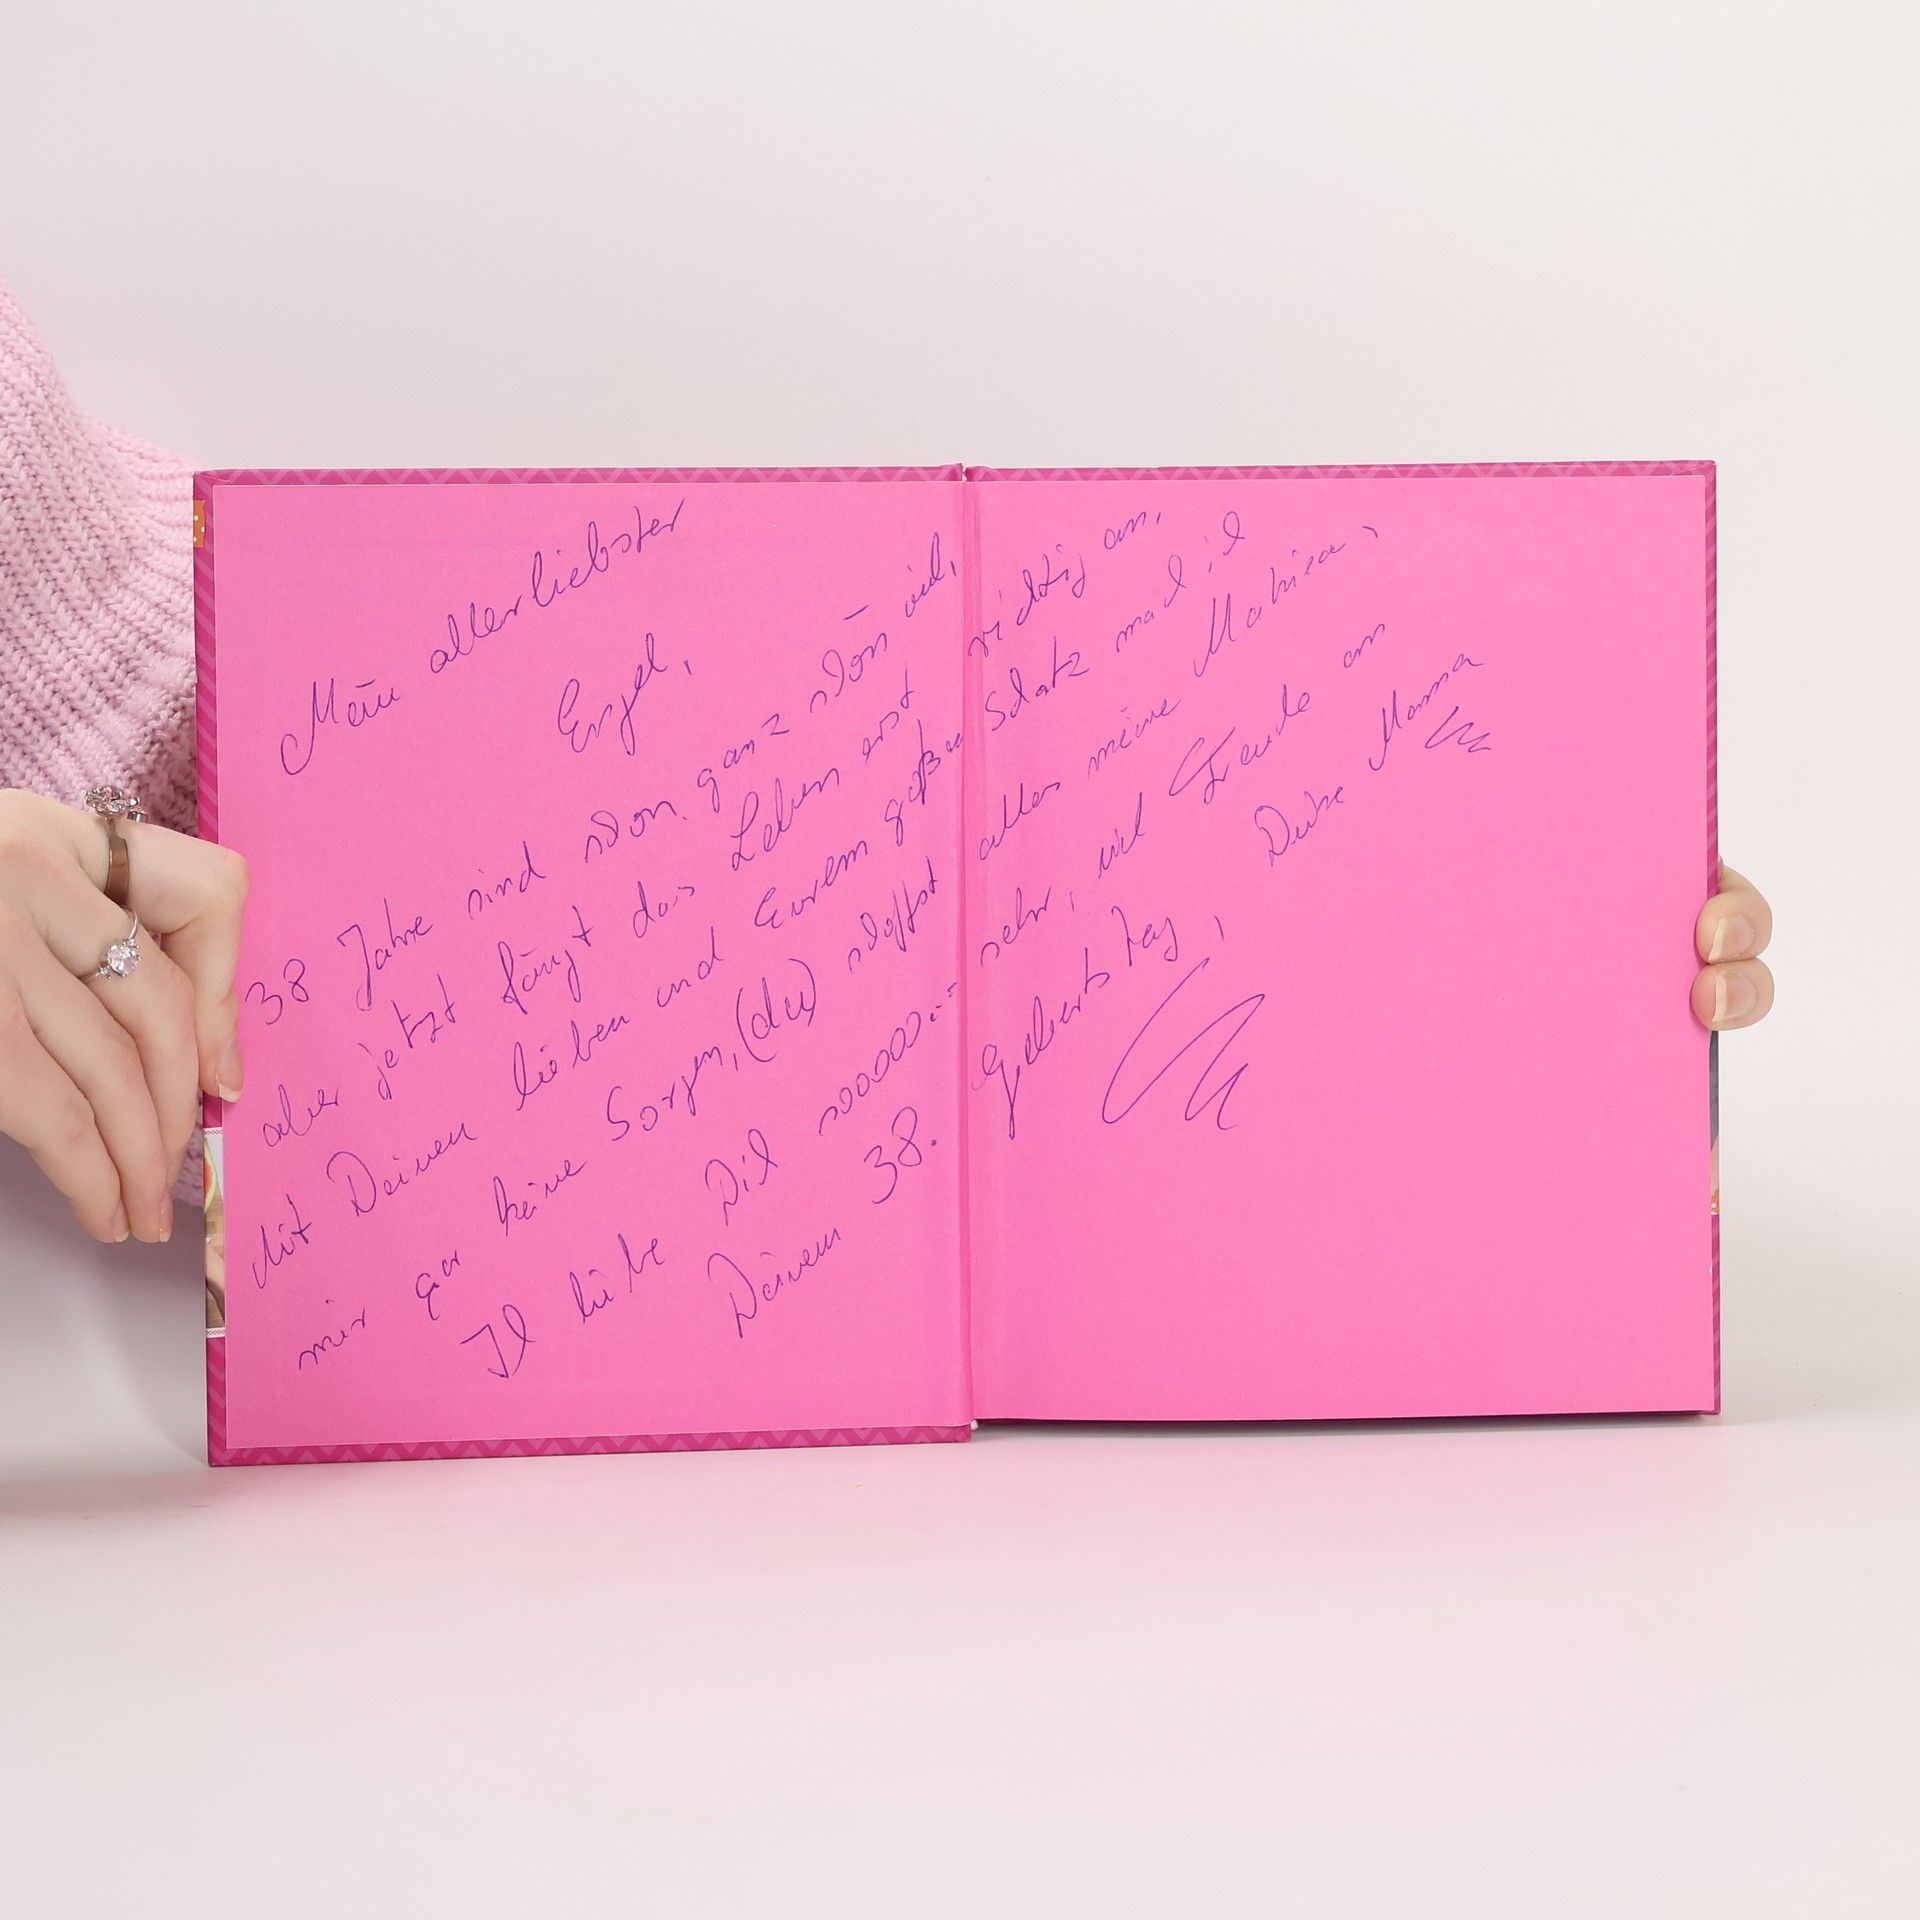 Mein allerliebster
Engel,
38 Jahre sind schon ganz schön viel,
aber jetzt fängt das Leben erst richtig an,
Mit Deinen lieben und Eurem großen Schatz mach ich
mir gar keine Sorgen, (du) schaffst alles meine
Ich liebe Dich sooooo... sehr, viel Freude an
Deinem 38. Geburtstag,
Deine Mama